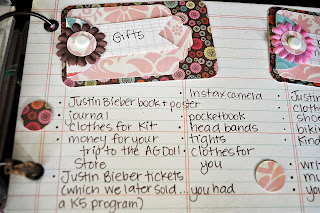 Gifts
Justin Bieber book + poster
journal
clothes for Kit
money for your
trip to the AG Doll
Store
Justin Bieber tickets
(which we later sold... you had
a K5 program)
Instax camera
pocketbook
head bands
tights
clothes for
you